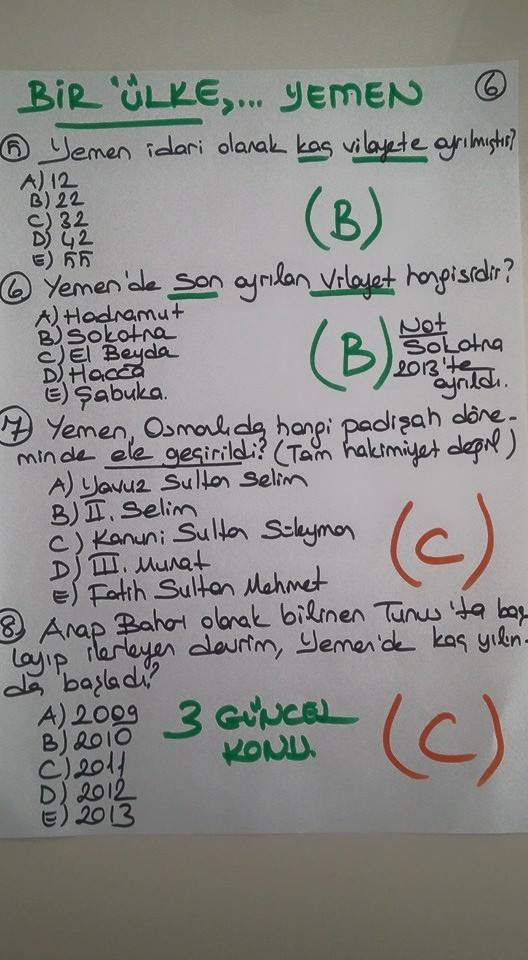 BİR ÜLKE,... YEMEN
6
5 Yemen idari olarak kaç vilayete ayrılmıştır?
A) 12
B) 22
C) 32
D) 42
E) 55
(B)
6 Yemen'de son ayrılan vilayet hangisidir?
A) Hadramut
B) Sokotra
C) El Beyda
D) Hacca
E) Şabuka.
(B)
Not
Sokotra
2013'te
ayrıldı.
7 Yemen, Osmanlıda hangi padişah döne-
minde ele geçirildi? (Tam hakimiyet değil)
A) Yavuz Sultan Selim
B) II. Selim
C) Kanuni Sultan Süleyman
D) III. Murat
E) Fatih Sultan Mehmet
(C)
8 Arap Baharı olarak bilinen Tunus'ta baş
layıp ilerleyen devrim, Yemen'de kaç yılın-
da başladı?
A) 2009
B) 2010
C) 2011
D) 2012
E) 2013
3 GÜNCEL
KONU.
(C)